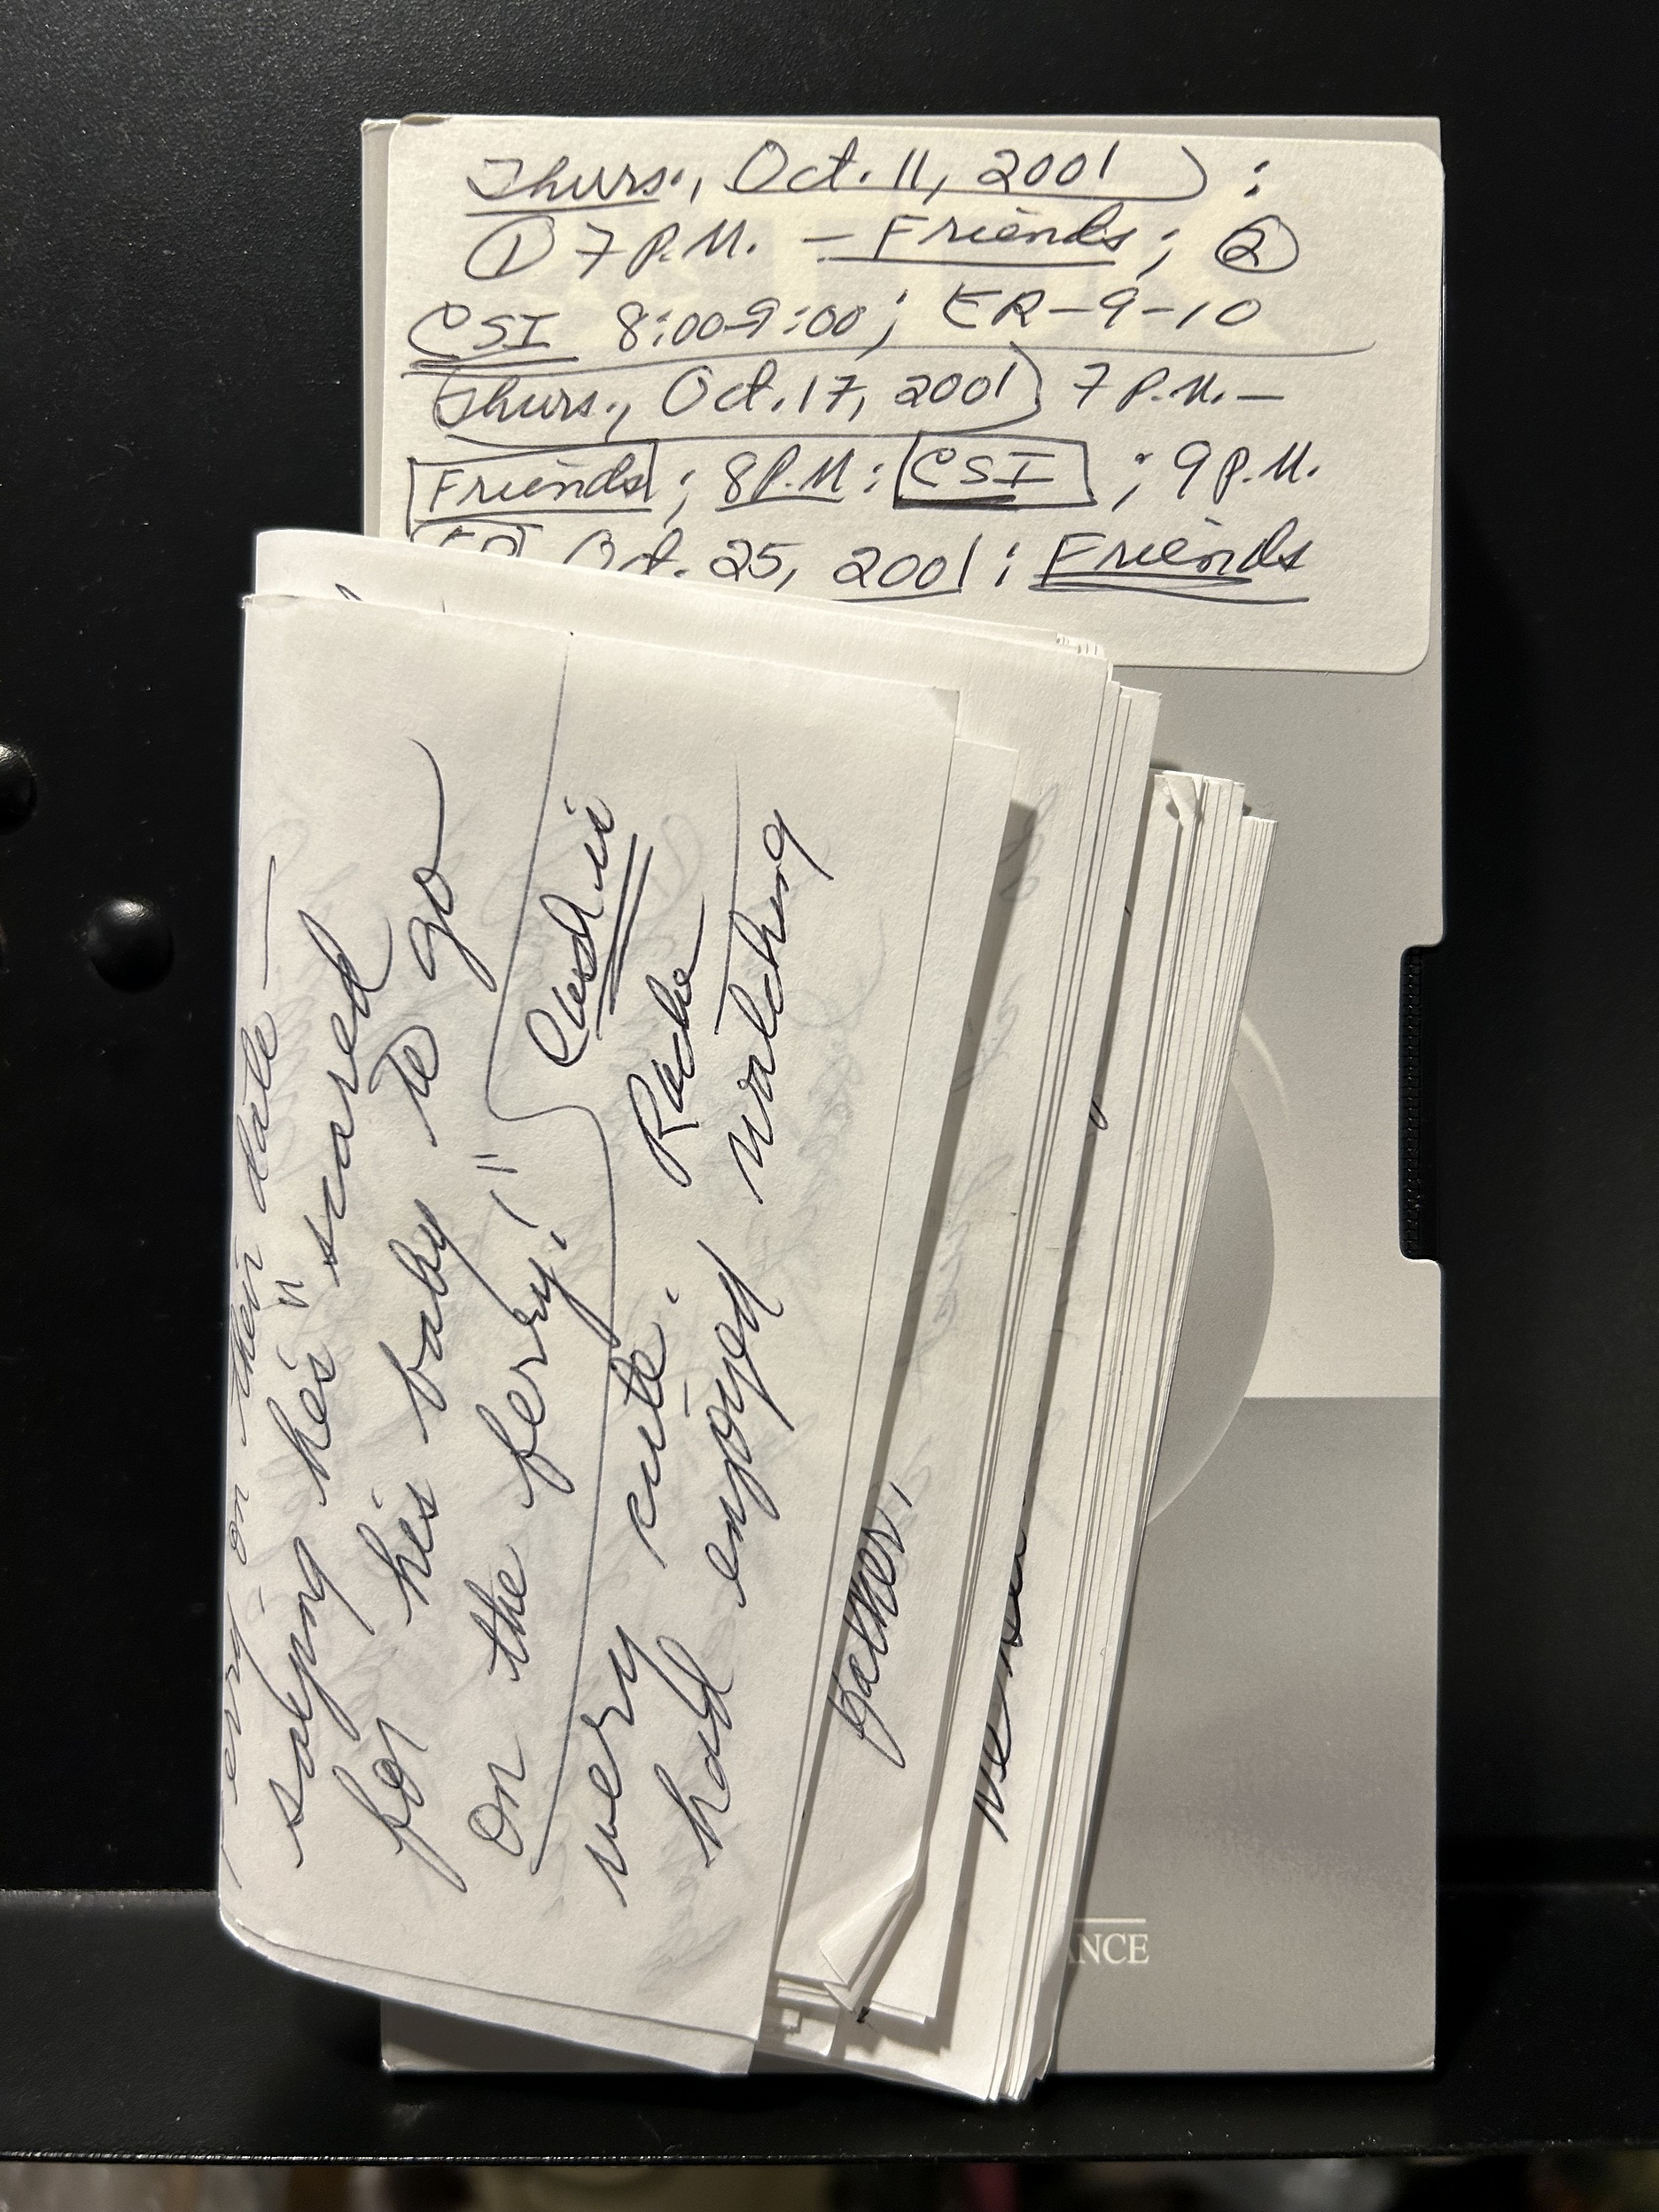 Thurs., Oct. 11, 2001) :
① 7 P.M. – Friends; ②
CSI 8:00-9:00; ER-9-10
Thurs., Oct. 17, 2001) 7 P.M. –
Friends; 8 P.M: CSI ; 9 P.M.
Oct. 25, 2001: Friends
on their date —
saying he's "scared
for his baby to go
on the ferry!"
very cute. Roche
had enjoyed watching
ANCE